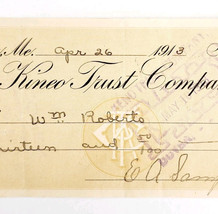 , Me. Apr 26 1913
Kineo Trust Compa
Wm Roberts
irteen and 50/100
E A Samp